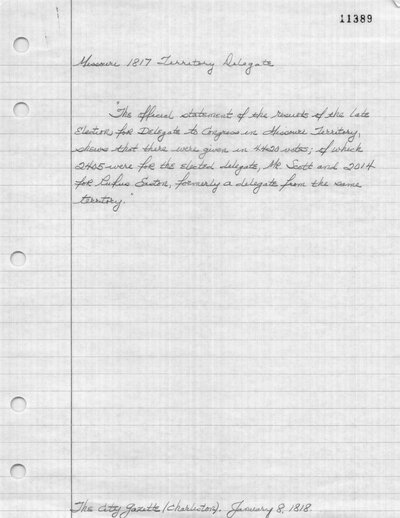 11389
Missouri 1817 Territory Delegate
"The official statement of the results of the late
Election for Delegate to Congress in Missouri Territory,
shews that there were given in 4420 votes; of which
2405 were for the elected delegate, Mr Scott and 2014
for Rufus Easton, formerly a delegate from the same
territory."
The City Gazette (Charleston). January 8, 1818.